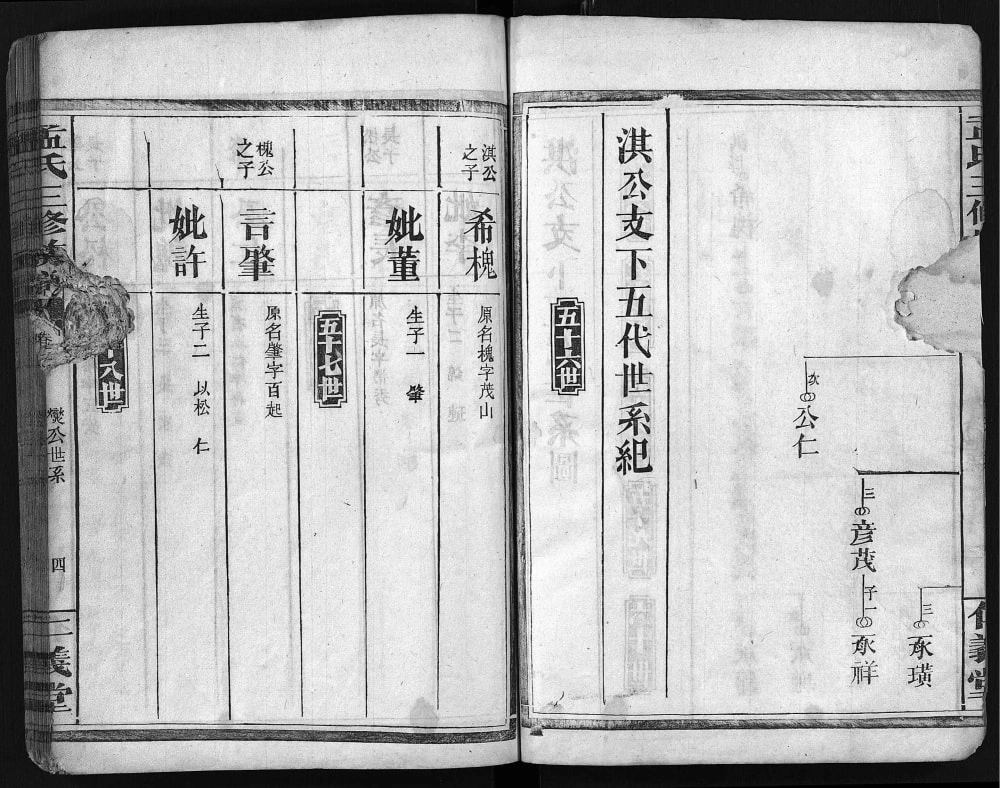 三
承璜
三
彦茂
子一
承祥
次
公仁
淇公支下五代世系紀
五十六世
淇公之子
希槐
原名槐字茂山
妣董
生子一 肇
五十七世
槐公之子
言肇
原名肇字百起
妣許
生子二 以松 仁
八世
孟氏三修族譜
卷
燮公世系
四
義堂